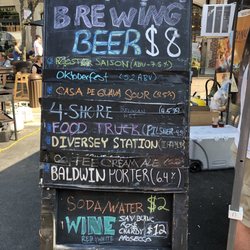 BREWING
BEER $8
ROOSTER SAISON (ABV-7.5%)
Oktoberfest (5.2 ABV)
CASA DE GUAVA SOUR (5.5%)
4-SHORE
FOOD TRUCK (PILSNER
DIVERSEY STATION
COFFEE CREAM ALE
BALDWIN PORTER (6.4%)
SODA/WATER $2
WINE SAUV BLANC
RED WHITE $12
PROSECCO